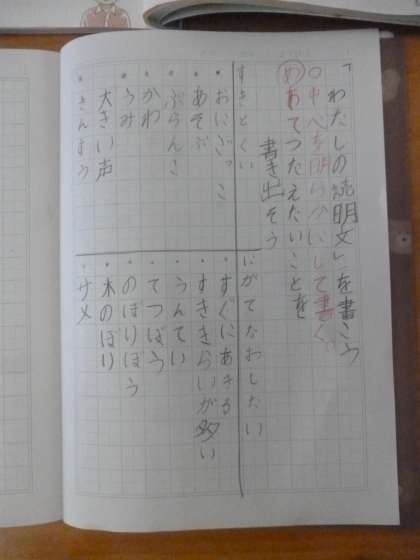 「わたしの説明文」を書こう
○中心を明らかにして書く。
めあてつたえたいことを
書き出そう
すきとくい
・おにごっこ
・あそぶ
・ぶらんこ
・かわ
・うみ
・大きい声
・さんすう
にがてなおしたい
・すぐにあきる
・すききらいが多い
・うんてい
・てつぼう
・のぼりぼう
・木のぼり
・サメ